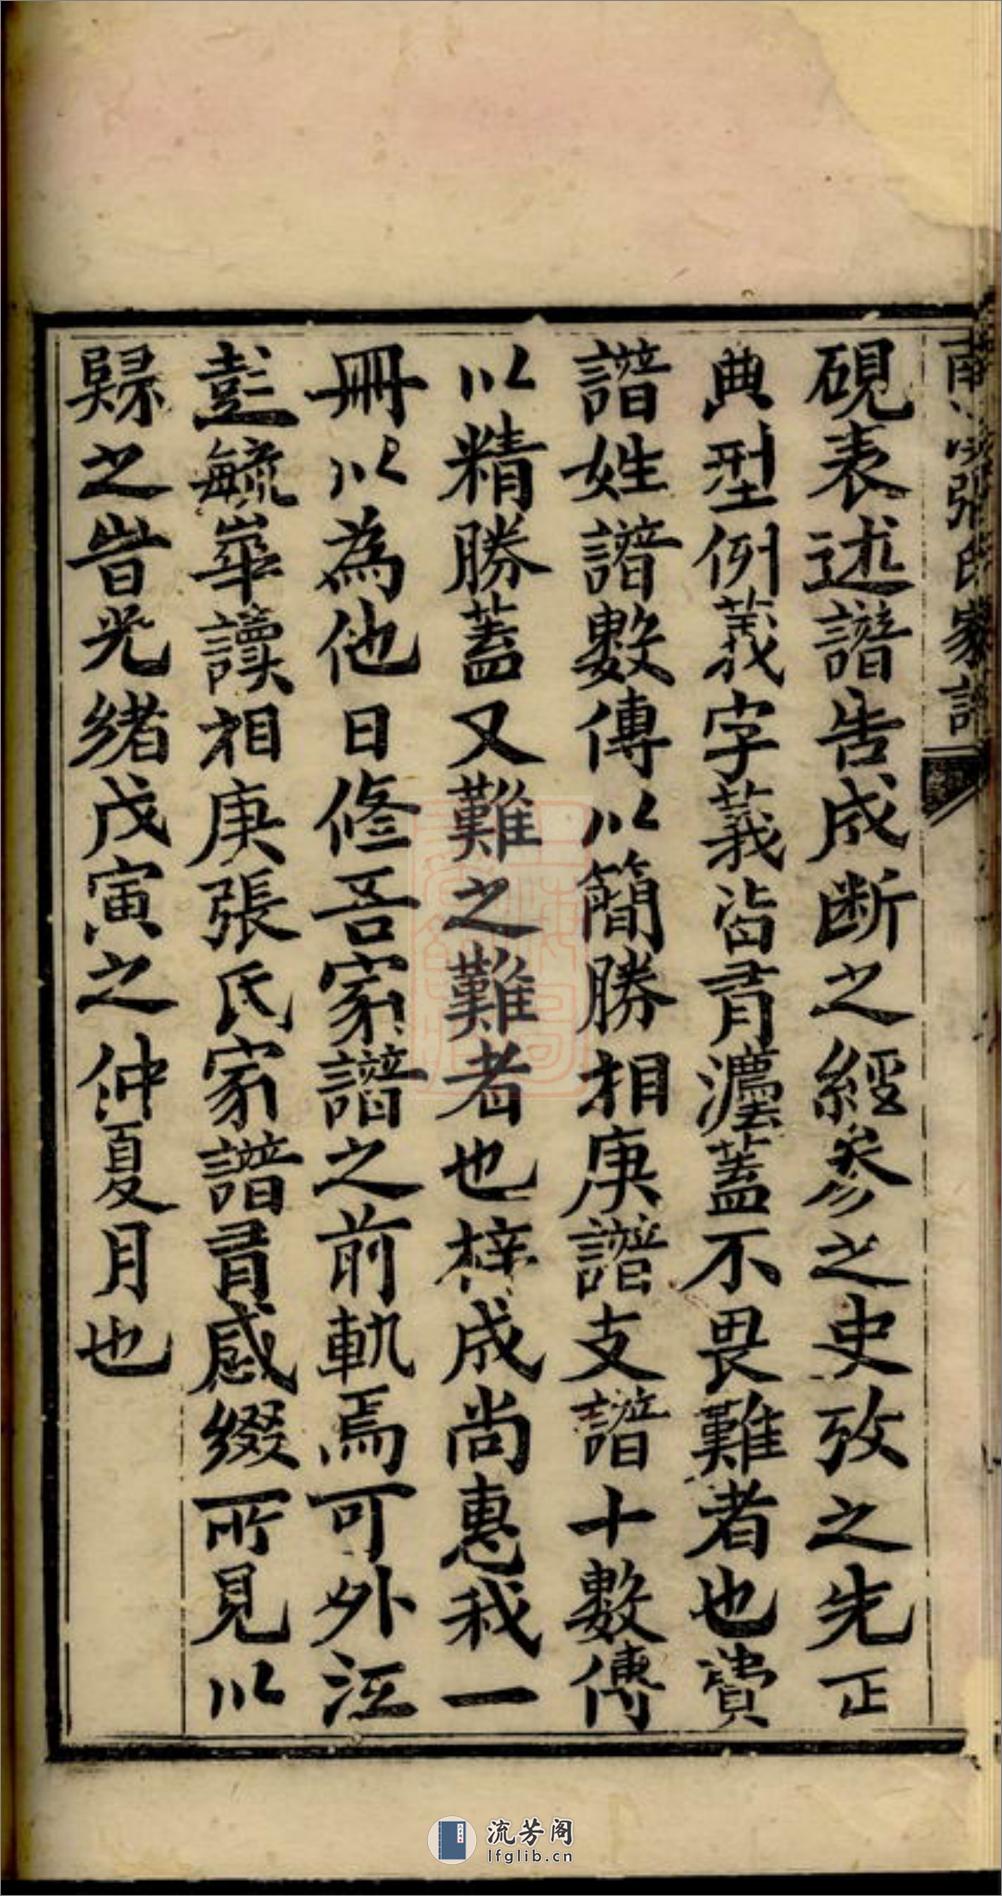 硯表述譜告成断之經叅之史攷之先正
典型例義字義沿㞷灋蓋不畏難者也費
譜姓譜數傳以簡勝相庚譜支譜十數傳
以精勝蓋又難之難者也梓成尚惠我一
冊以為他日修吾家譜之前軌焉可外江
彭毓崋讀相庚張氏家譜㞷感綴所見以
歸之旹光緒戊寅之仲夏月也
張氏家譜
流芳阁
lfglib.cn